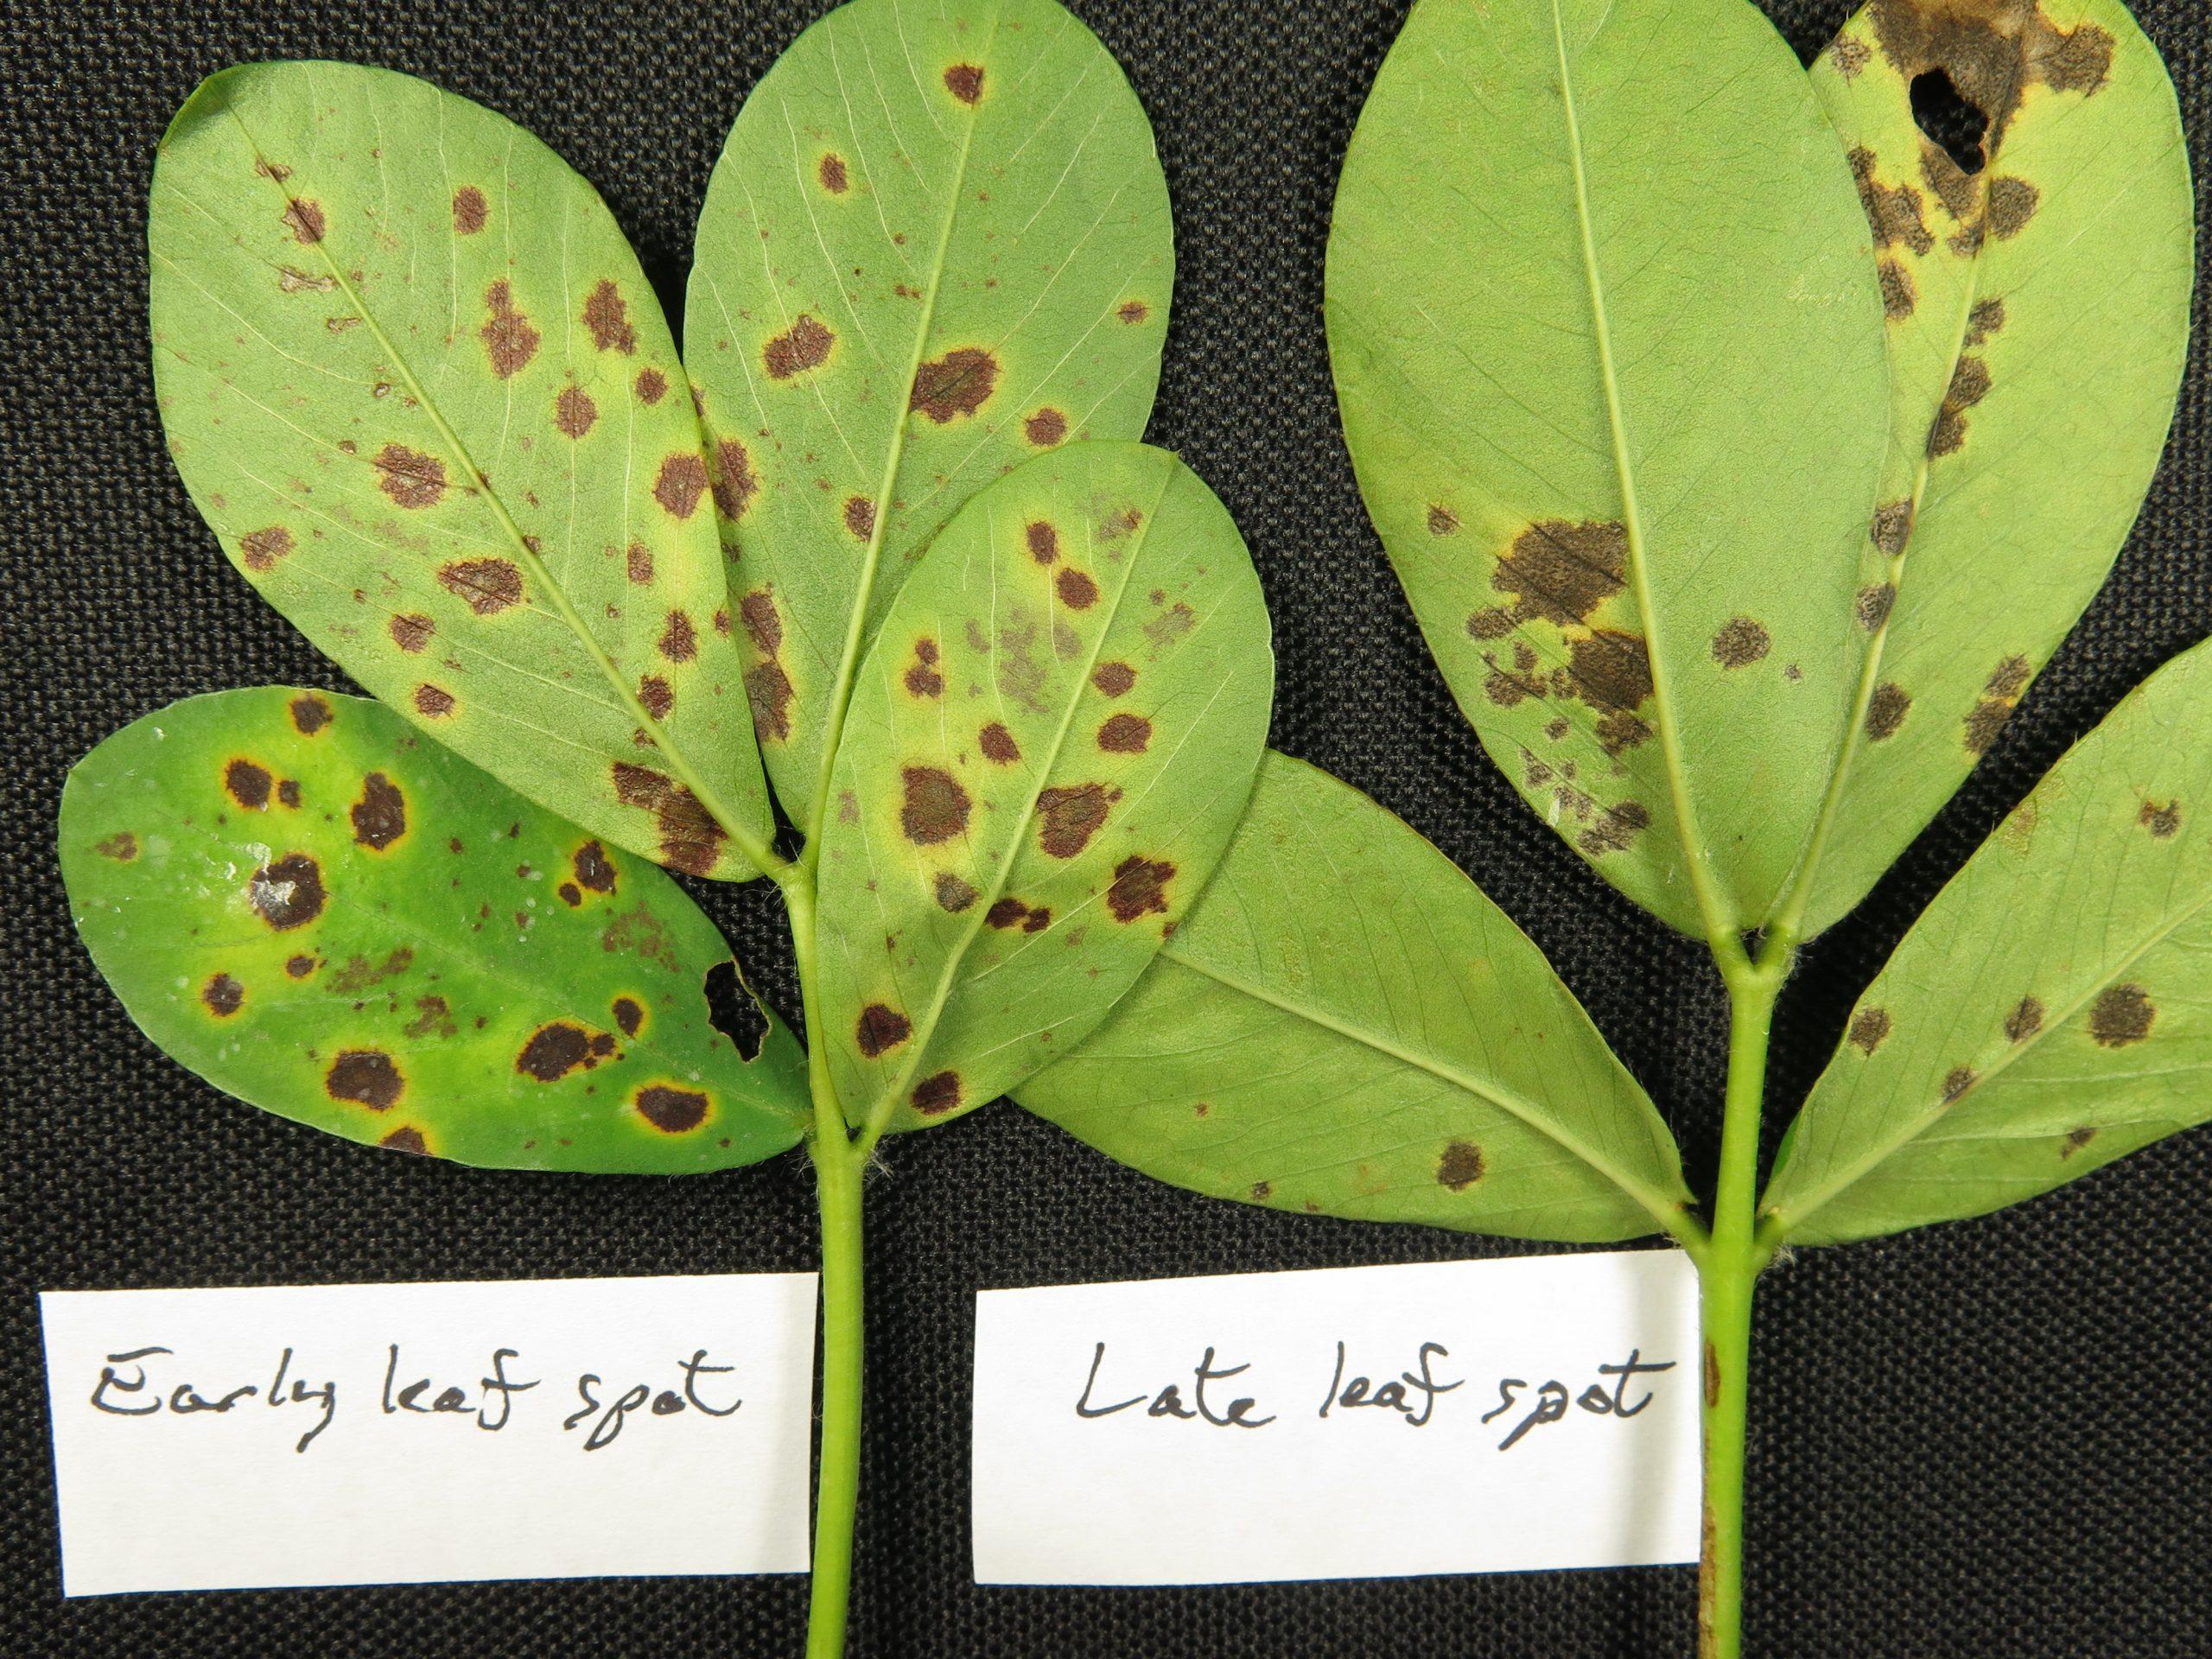 Early leaf spot
Late leaf spot